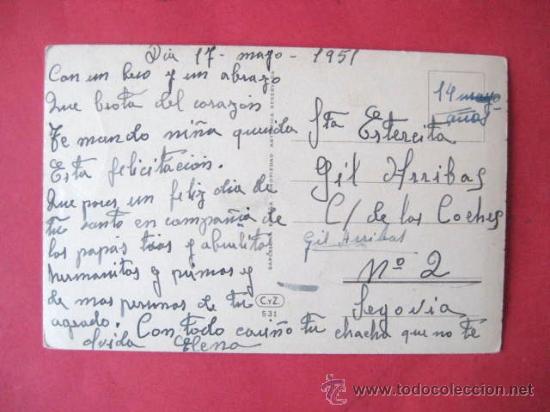 Dia 17 - mayo - 1951
Con un beso y un abrazo
Que brota del corazón
Te mando niña querida
Esta felicitación.
Que pases un feliz dia de
tu santo en compañia de
los papás tios y abuelitos
hermanitos y primos y
de mas personas de tu
agrado. Con todo cariño tu chacha que no te
olvida Elena
14 mayo
años
Sta Estercita
Gil Arribas
C/ de los Coches
Gil Arribas
Nº 2
Segovia
C.yZ.
531
www.todocoleccion.net